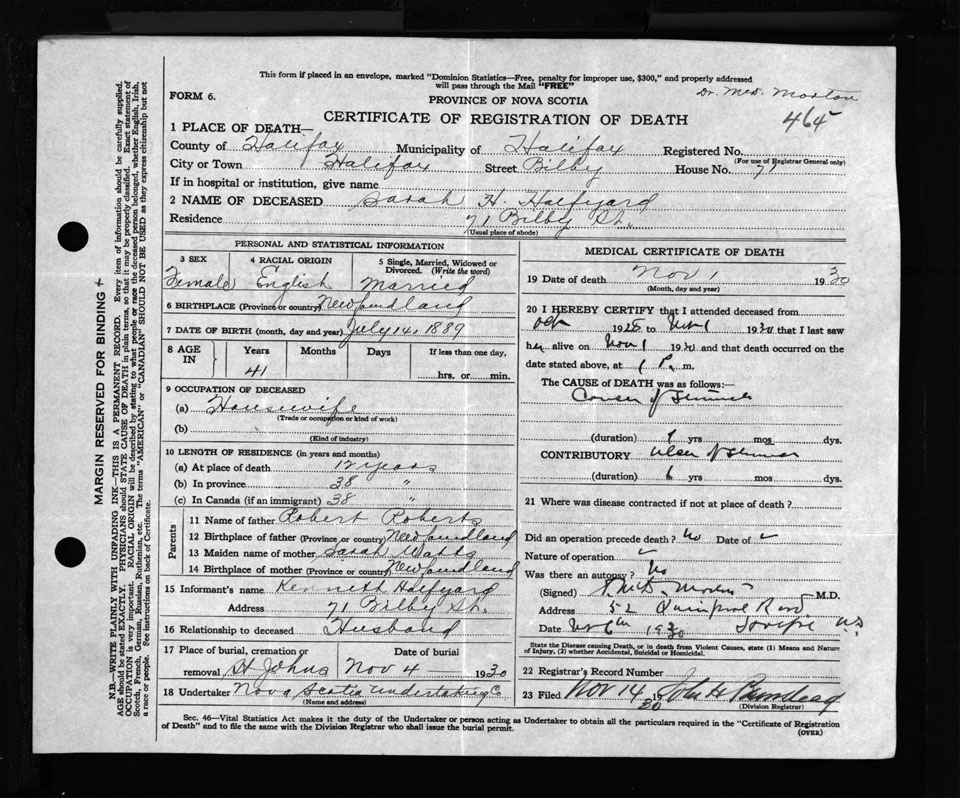 This form if placed in an envelope, marked "Dominion Statistics—Free, penalty for improper use, $300," and properly addressed
will pass through the Mail "FREE"
FORM 6.
PROVINCE OF NOVA SCOTIA
Dr. McD. Morton
CERTIFICATE OF REGISTRATION OF DEATH
464
1 PLACE OF DEATH—
County of Halifax Municipality of Halifax Registered No.
(For use of Registrar General only)
City or Town Halifax Street Bilby House No. 71
If in hospital or institution, give name
2 NAME OF DECEASED Sarah H. Halfyard
Residence 71 Bilby St.
(Usual place of abode)
PERSONAL AND STATISTICAL INFORMATION
3 SEX 4 RACIAL ORIGIN 5 Single, Married, Widowed or
Divorced. (Write the word)
Female English Married
6 BIRTHPLACE (Province or country) Newfoundland
7 DATE OF BIRTH (month, day and year) July 14, 1889
8 AGE IN Years Months Days If less than one day,
41 hrs. or min.
9 OCCUPATION OF DECEASED
(a) Housewife
(Trade or occupation or kind of work)
(b)
(Kind of industry)
10 LENGTH OF RESIDENCE (in years and months)
(a) At place of death 12 years
(b) In province 38 "
(c) In Canada (if an immigrant) 38 "
Parents
11 Name of father Robert Roberts
12 Birthplace of father (Province or country) Newfoundland
13 Maiden name of mother Sarah Watts
14 Birthplace of mother (Province or country) Newfoundland
15 Informant's name Kenneth Halfyard
Address 71 Bilby St.
16 Relationship to deceased Husband
17 Place of burial, cremation or Date of burial
removal St Johns Nov 4 1930
18 Undertaker Nova Scotia Undertaking Co
(Name and address)
MEDICAL CERTIFICATE OF DEATH
19 Date of death Nov 1 1930
(Month, day and year)
20 I HEREBY CERTIFY that I attended deceased from
Oct 1928 to Nov 1 1930 that I last saw
her alive on Nov 1 1930 and that death occurred on the
date stated above, at 1 P. m.
The CAUSE OF DEATH was as follows:—
Cancer of
(duration) yrs mos dys.
CONTRIBUTORY Ulcer of
(duration) 6 yrs mos dys.
21 Where was disease contracted if not at place of death?
Did an operation precede death? No Date of
Nature of operation
Was there an autopsy? No
(Signed) McD. Morton M.D.
Address 52 Quinpool Road
Date Nov 6th 1930 N.S.
State the Disease causing Death, or in death from Violent Causes, state (1) Means and Nature
of Injury, (2) whether Accidental, Suicidal or Homicidal.
22 Registrar's Record Number
23 Filed Nov 14 1930 John H
(Division Registrar)
Sec. 46—Vital Statistics Act makes it the duty of the Undertaker or person acting as Undertaker to obtain all the particulars required in the "Certificate of Registration
of Death" and to file the same with the Division Registrar who shall issue the burial permit.
(OVER)
MARGIN RESERVED FOR BINDING
N.B.—WRITE PLAINLY WITH UNFADING INK—THIS IS A PERMANENT RECORD. Every item of information should be carefully supplied.
AGE should be stated EXACTLY. PHYSICIANS should STATE CAUSE OF DEATH in plain terms, so that it may be properly classified. Exact statement of
OCCUPATION is very important. RACIAL ORIGIN will be described by stating to what people or race the deceased person belonged, whether English, Irish,
Scotch, French, German, Russian, Ruthenian, etc. The terms "AMERICAN" or "CANADIAN" SHOULD NOT BE USED as they express citizenship but not
a race or people. See instructions on back of Certificate.